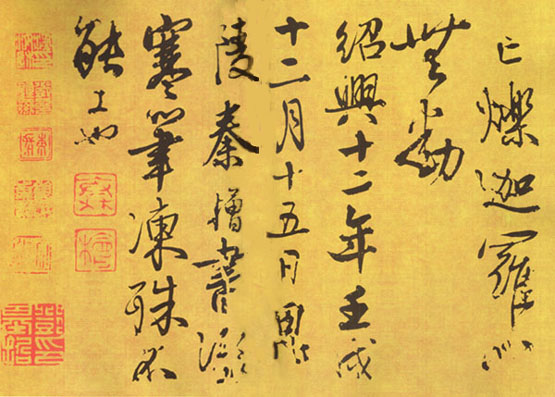 亡爍迦羅心
無動
紹興十二年壬戌
十二月十五日
陵秦檜書
寒筆凍殊不
能工也
秦檜